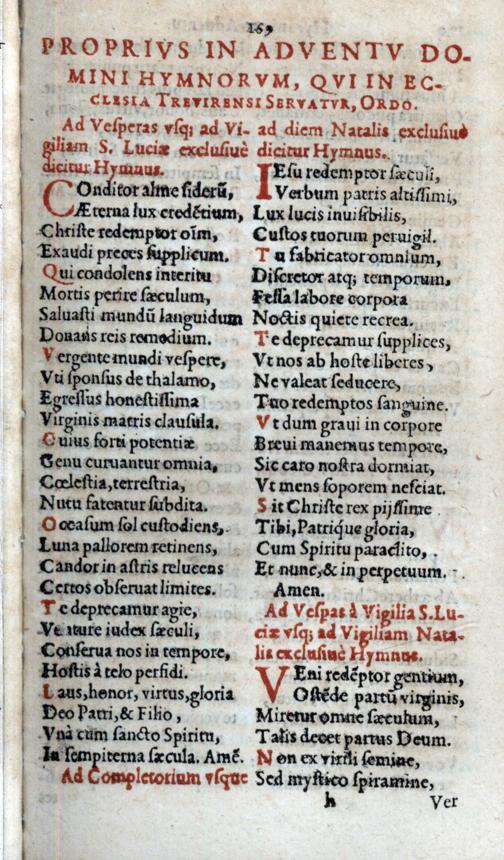 169
PROPRIVS IN ADVENTV DO-
MINI HYMNORVM, QVI IN EC-
CLESIA TREVIRENSI SERVATVR, ORDO.
Ad Vesperas vsq; ad Vi-
giliam S. Luciæ exclusiuè
dicitur Hymnus.
COnditor alme siderũ,
Æterna lux credẽtium,
Christe redemptor oĩm,
Exaudi preces supplicum.
Qui condolens interitu
Mortis perire sæculum,
Saluasti mundũ languidum
Donans reis remedium.
Vergente mundi vespere,
Vti sponsus de thalamo,
Egressus honestissima
Virginis matris clausula.
Cuius forti potentiæ
Genu curuantur omnia,
Cœlestia, terrestria,
Nutu fatentur subdita.
Occasum sol custodiens,
Luna pallorem retinens,
Candor in astris relucens
Certos obseruat limites.
Te deprecamur agie,
Venture iudex sæculi,
Conserua nos in tempore,
Hostis à telo perfidi.
Laus, honor, virtus, gloria
Deo Patri, & Filio,
Vnà cum sancto Spiritu,
In sempiterna sæcula. Amẽ.
Ad Completorium vsque
ad diem Natalis exclusiuè
dicitur Hymnus.
IEsu redemptor sæculi,
Verbum patris altissimi,
Lux lucis inuisibilis,
Custos tuorum peruigil.
Tu fabricator omnium,
Discretor atq; temporum,
Fessa labore corpora
Noctis quiete recrea.
Te deprecamur supplices,
Vt nos ab hoste liberes,
Ne valeat seducere,
Tuo redemptos sanguine.
Vt dum graui in corpore
Breui manemus tempore,
Sic caro nostra dormiat,
Vt mens soporem nesciat.
Sit Christe rex pijssime
Tibi, Patriq́ue gloria,
Cum Spiritu paraclito,
Et nunc, & in perpetuum.
Amen.
Ad Vesp̄as à Vigilia S. Lu-
ciæ vsq; ad Vigiliam Nata-
lis exclusiuè Hymnus.
VEni redẽptor gentium,
Ostẽde partũ virginis,
Miretur omne sæculum,
Talis decet partus Deum.
Non ex virili semine,
Sed mystico spiramine,
h
Ver